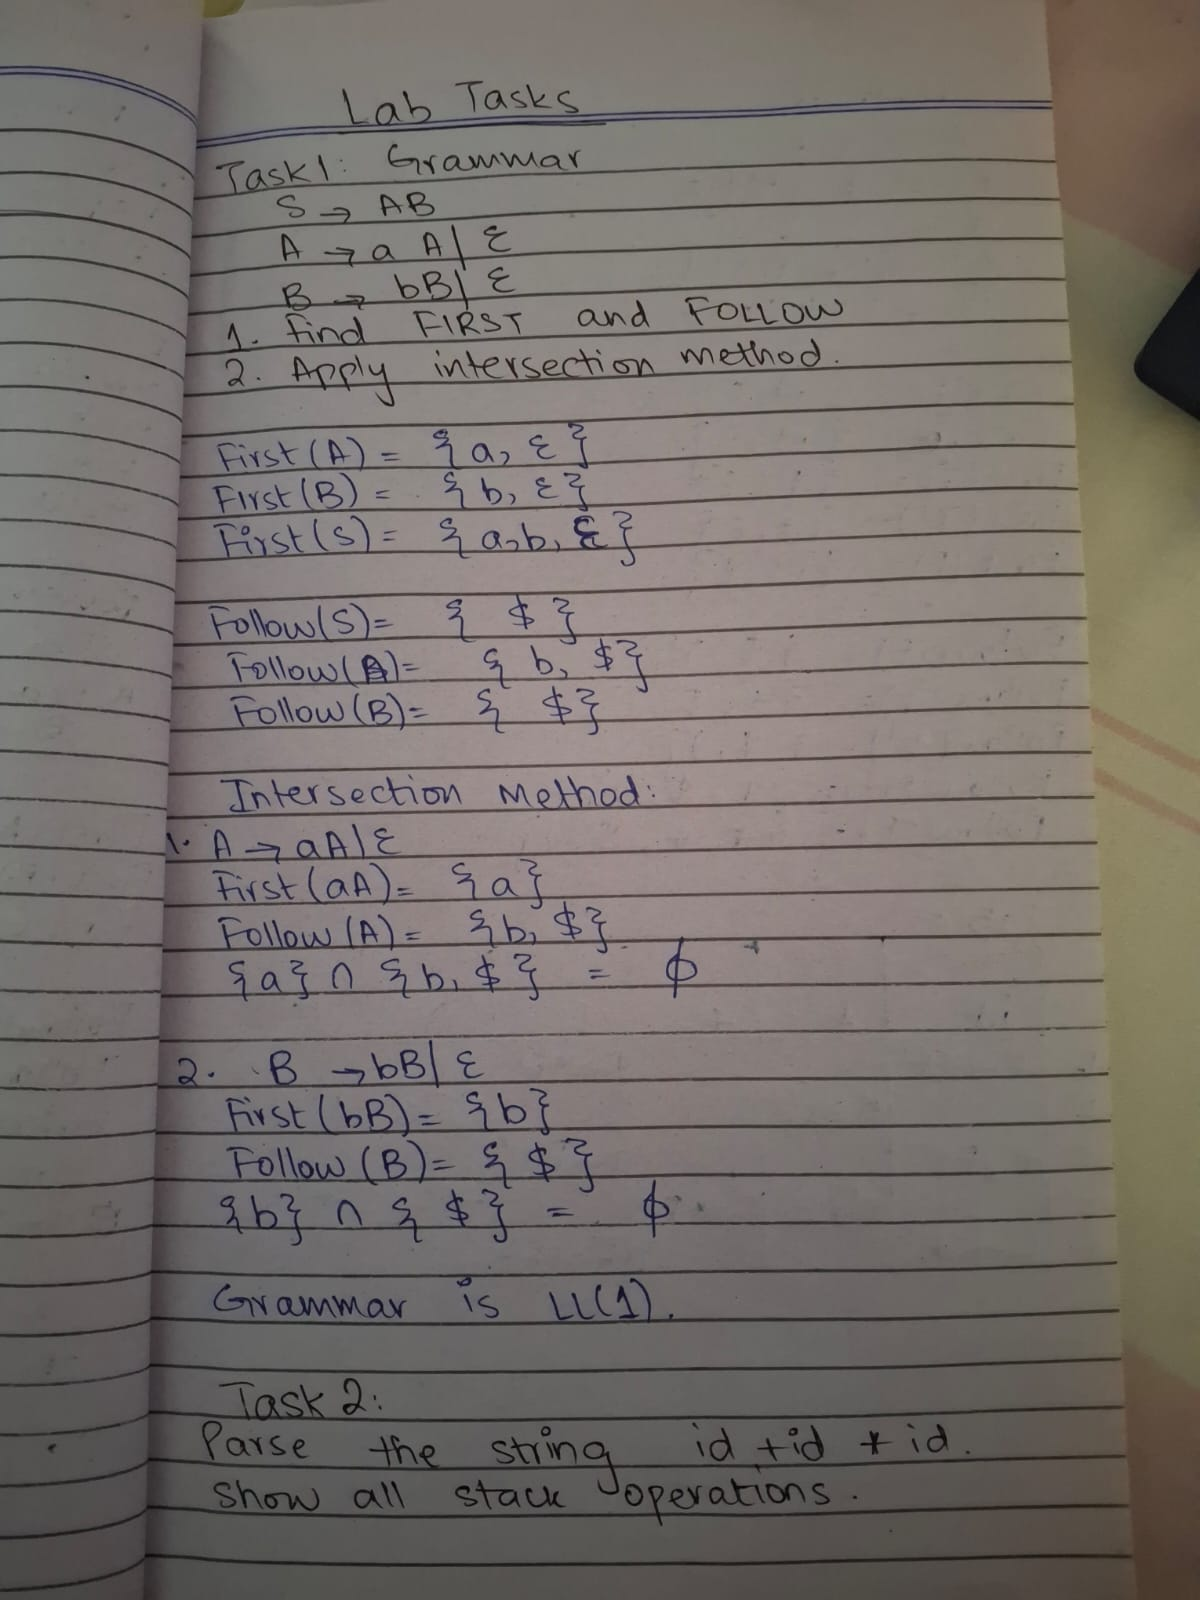 Lab Tasks
Task1: Grammar
S → AB
A → a A | ε
B → bB | ε
1. find FIRST and FOLLOW
2. Apply intersection method.
First (A) = {a, ε}
First (B) = {b, ε}
First (S) = {a,b, ε}
Follow(S)= { $ }
Follow(A)= { b, $}
Follow (B)= { $}
Intersection Method:
1. A → aA | ε
First (aA)= {a}
Follow (A) = {b, $}
{a} ∩ {b, $} = ϕ
2. B → bB | ε
First (bB)= {b}
Follow (B)= { $ }
{b} ∩ { $ } = ϕ
Grammar is LL(1).
Task 2:
Parse the string id +id * id.
Show all stack operations.